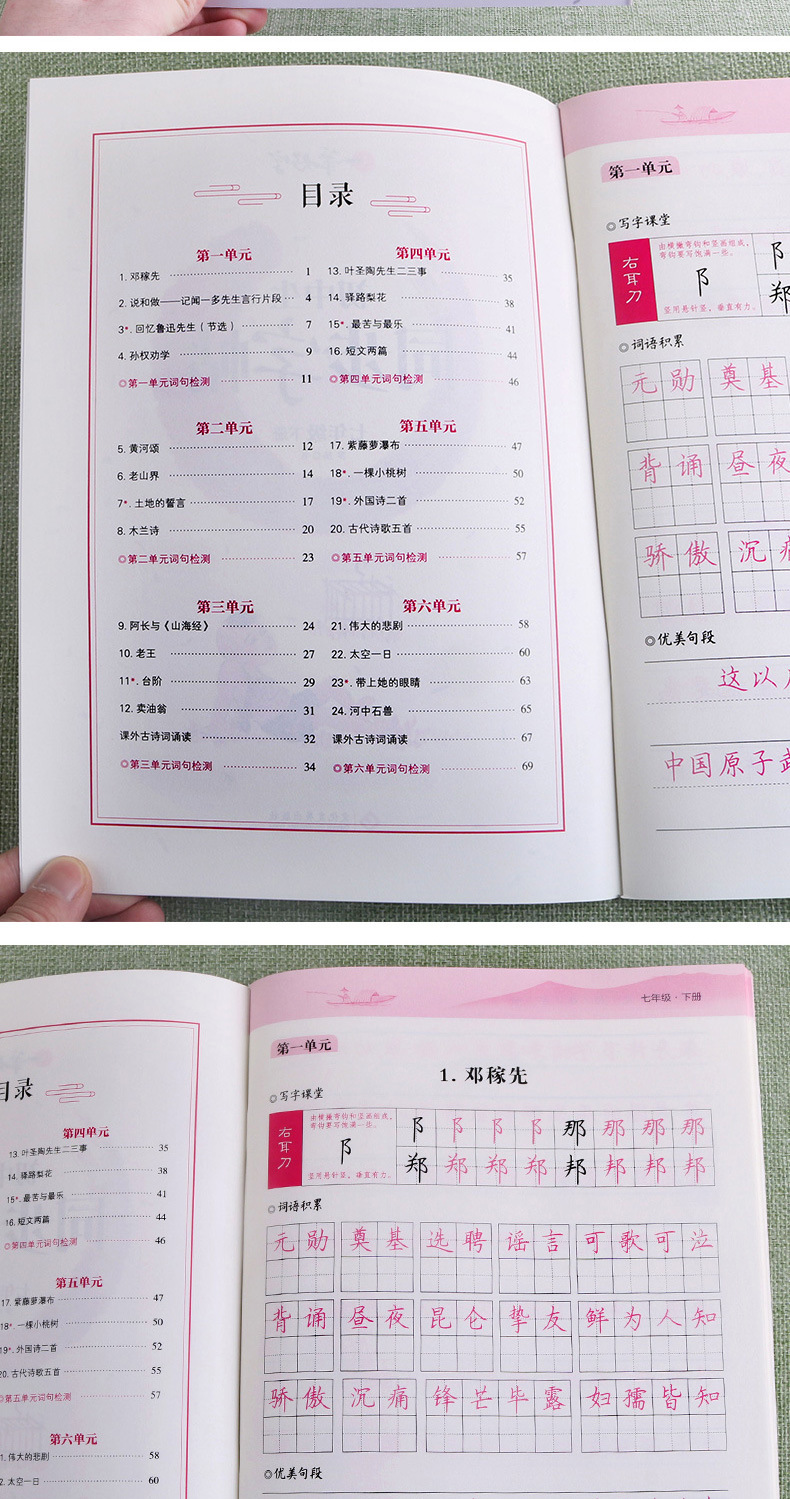 目录
第一单元
1. 邓稼先 1
2. 说和做——记闻一多先生言行片段 4
3*. 回忆鲁迅先生（节选） 7
4. 孙权劝学 9
◎第一单元词句检测 11
第二单元
5. 黄河颂 12
6. 老山界 14
7*. 土地的誓言 17
8. 木兰诗 20
◎第二单元词句检测 23
第三单元
9. 阿长与《山海经》 24
10. 老王 27
11*. 台阶 29
12. 卖油翁 31
课外古诗词诵读 32
◎第三单元词句检测 34
第四单元
13. 叶圣陶先生二三事 35
14. 驿路梨花 38
15*. 最苦与最乐 41
16. 短文两篇 44
◎第四单元词句检测 46
第五单元
17. 紫藤萝瀑布 47
18*. 一棵小桃树 50
19*. 外国诗二首 52
20. 古代诗歌五首 55
◎第五单元词句检测 57
第六单元
21. 伟大的悲剧 58
22. 太空一日 60
23*. 带上她的眼睛 63
24. 河中石兽 65
课外古诗词诵读 67
◎第六单元词句检测 69
第一单元
◎写字课堂
右耳刀
由横撇弯钩和竖画组成，
弯钩要写饱满一些。
阝
竖用悬针竖，垂直有力。
阝
郑
◎词语积累
元勋 奠基
背诵 昼夜
骄傲 沉
◎优美句段
这以
中国原子
目录
第四单元
13. 叶圣陶先生二三事 35
14. 驿路梨花 38
15*. 最苦与最乐 41
16. 短文两篇 44
◎第四单元词句检测 46
第五单元
17. 紫藤萝瀑布 47
18*. 一棵小桃树 50
19*. 外国诗二首 52
20. 古代诗歌五首 55
◎第五单元词句检测 57
第六单元
1. 伟大的悲剧 58
2. 太空一日 60
七年级·下册
第一单元
1. 邓稼先
◎写字课堂
右耳刀
由横撇弯钩和竖画组成，
弯钩要写饱满一些。
阝
竖用悬针竖，垂直有力。
阝 阝 阝 阝 那 那 那 那
郑 郑 郑 郑 邦 邦 邦 邦
◎词语积累
元勋 奠基 选聘 谣言 可歌可泣
背诵 昼夜 昆仑 挚友 鲜为人知
骄傲 沉痛 锋芒毕露 妇孺皆知
◎优美句段